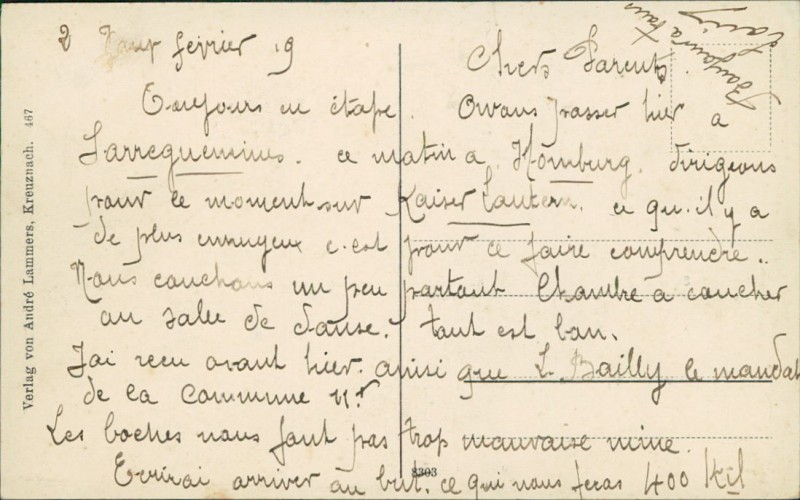 2 février 19
Chers Parents.
Toujours en étape. Avons passer hier a
Sarreguemines. ce matin a Hömburg. dirigeons
pour le moment sur Kaiser Lautern. ce qu.il y a
de plus ennuyeux c.est pour ce faire comprendre..
Nous couchons un peu partout Chambre a coucher
ou salle de danse. tout est bon.
J'ai recu avant hier. ainsi que L. Bailly le mandat
de la Commune
Les boches nous font pas trop mauvaise mine.
Ecrirai arriver au but. ce qui nous feras 400 Kil
Verlag von André Lammers, Kreuznach. 467
8303